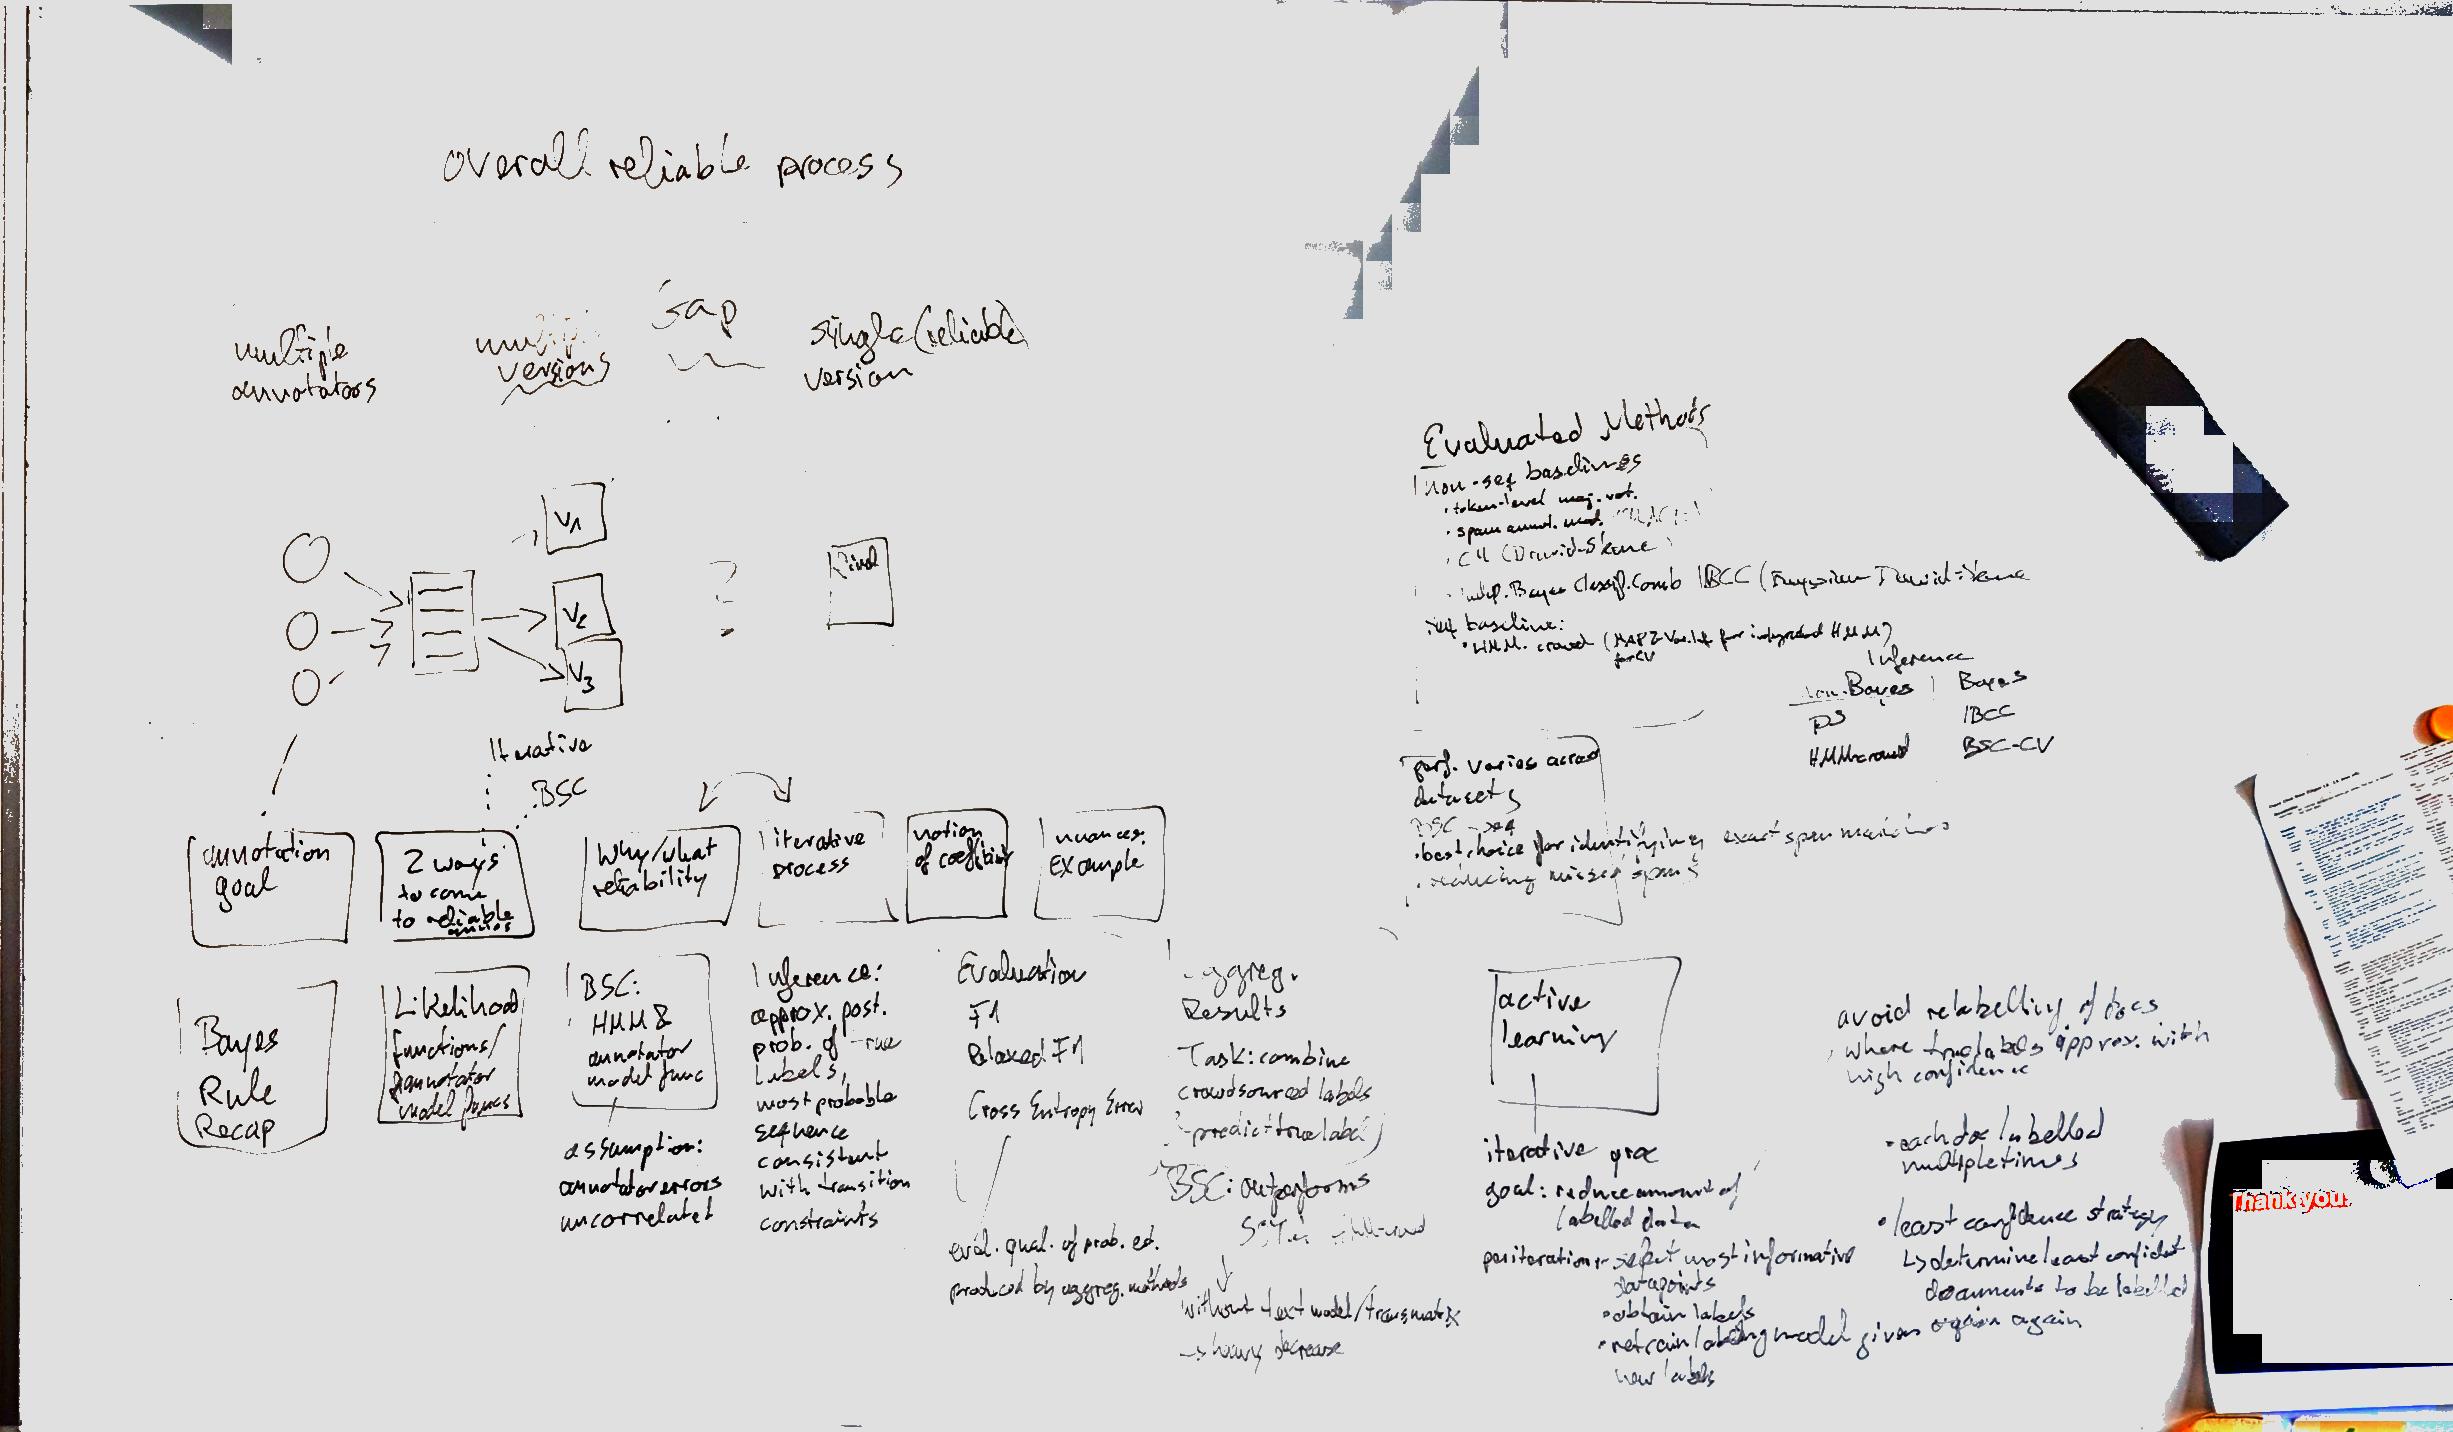 overall reliable process
gap
multiple
annotators
multiple
versions
single (reliable)
version
V1
V2
V3
?
Final
Iterative
BSC
annotation
goal
2 ways
to come
to reliable
Why/what
reliability
iterative
process
notion
of
nuances:
Example
Bayes
Rule
Recap
Likelihood
functions/
annotator
model funcs
BSC:
HMM &
annotator
model func
assumption:
annotator errors
uncorrelated
Inference:
approx. post.
prob. of true
labels,
most probable
sequence
consistent
with transition
constraints
Evaluation
F1
Relaxed F1
Cross Entropy Error
eval. qual. of prob. est.
produced by aggreg. methods
Aggreg.
Results
Task: combine
crowdsourced labels
predict true label)
BSC: outperforms
without text model/trans matrix
→ heavy decrease
Evaluated Methods
non-seq baselines
· token-level maj. vot.
· spam annot. mod.
Indep. Bayes Classif. Comb IBCC (Bayesian Dawid-Skene
seq baseline:
· HMM-crowd (MAP for integrated HMM)
for CV
Inference
non-Bayes | Bayes
DS IBCC
HMM-crowd BSC-CV
perf. varies across
datasets
BSC-seq
· best choice for identifying exact span matches
· reducing missed spans
active
learning
iterative proc
goal: reduce amount of
labelled data
per iteration: select most informative
datapoints
· obtain labels
· retrain labeling model given again again
new labels
avoid relabelling of docs
where true labels approx. with
high confidence
· each doc labelled
multiple times
· least confidence strategy
↳ determine least confident
documents to be labelled
Thank you.